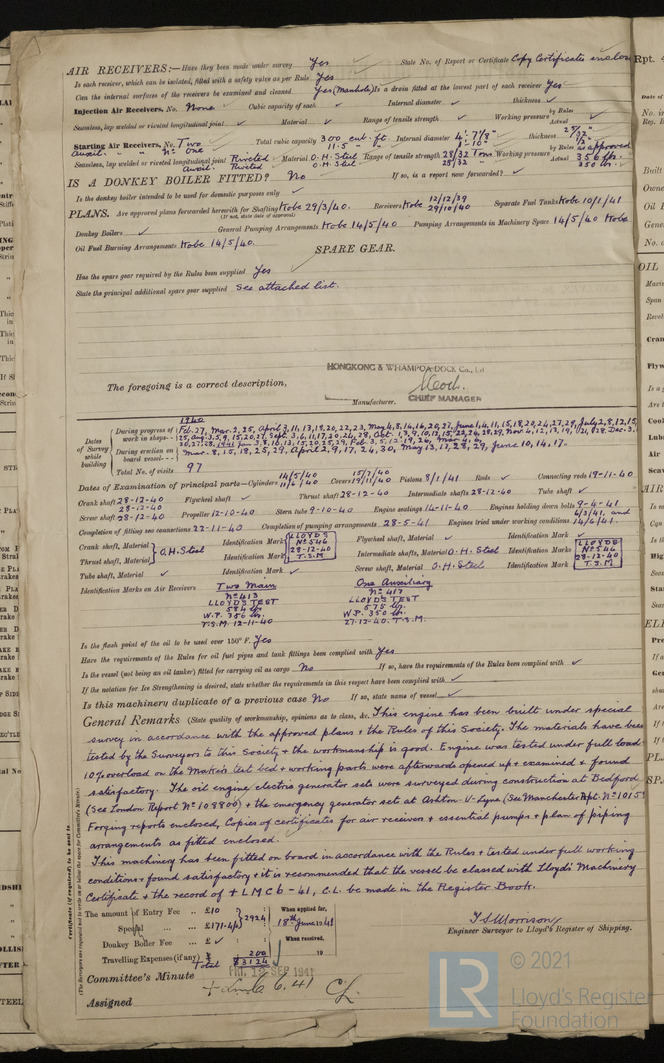 AIR RECEIVERS:—Have they been made under survey Yes State No. of Report or Certificate Copy Certificates enclos
Is each receiver, which can be isolated, fitted with a safety valve as per Rule Yes
Can the internal surfaces of the receivers be examined and cleaned Yes (Manhole) Is a drain fitted at the lowest part of each receiver Yes
Injection Air Receivers, No. None Cubic capacity of each ✓ Internal diameter ✓ thickness ✓
Seamless, lap welded or riveted longitudinal joint ✓ Material ✓ Range of tensile strength ✓ Working pressure by Rules Actual
Starting Air Receivers, No. Two Total cubic capacity 300 cub. ft. Internal diameter 4'-7⅞" thickness 27/32"
Auxil. " " No One 11.5 " "
Seamless, lap welded or riveted longitudinal joint Riveted Material O.H. Steel Range of tensile strength 28/32 Tons Working pressure by Rules as approved Actual 356 lbs.
Auxil. Riveted O.H. Steel 28/32 " 350 lbs.
IS A DONKEY BOILER FITTED? No If so, is a report now forwarded? ✓
Is the donkey boiler intended to be used for domestic purposes only ✓
PLANS. Are approved plans forwarded herewith for Shafting Kobe 29/3/40. Receivers Kobe 12/12/39 29/10/40 Separate Fuel Tanks Kobe 10/1/41
(If not, state date of approval)
Donkey Boilers ✓ General Pumping Arrangements Kobe 14/5/40 Pumping Arrangements in Machinery Space 14/5/40 Kobe
Oil Fuel Burning Arrangements Kobe 14/5/40.
SPARE GEAR.
Has the spare gear required by the Rules been supplied Yes
State the principal additional spare gear supplied See attached list.
HONGKONG & WHAMPOA DOCK Co., Ltd
The foregoing is a correct description,
Manufacturer. CHIEF MANAGER
1940
Dates of Survey while building
During progress of work in shops - - Feb. 27, Mar. 2, 25, April 3, 11, 13, 19, 20, 22, 23, May 4, 8, 14, 16, 20, 27, June 1, 4, 11, 15, 18, 20, 24, 27, 29, July 2, 8, 12, 15,
During erection on board vessel - - - Mar. 8, 15, 18, 25, 29, April 2, 9, 17, 24, 30, May 13, 17, 28, 29, June 10, 14, 17.
Total No. of visits 97
Dates of Examination of principal parts—Cylinders 14/5/40 11/6/40 Covers 15/7/40 19/11/40 Pistons 8/1/41 Rods ✓ Connecting rods 19-11-40
Crank shaft 28-12-40 Flywheel shaft ✓ Thrust shaft 28-12-40 Intermediate shafts 28-12-40 Tube shaft ✓
Screw shaft 28-12-40 Propeller 12-10-40 Stern tube 9-10-40 Engine seatings 14-11-40 Engines holding down bolts 9-4-41
Completion of fitting sea connections 22-11-40 Completion of pumping arrangements 28-5-41 Engines tried under working conditions 14/6/41
Crank shaft, Material Identification Mark LLOYDS No 546 28-12-40 T.S.M. Flywheel shaft, Material ✓ Identification Mark ✓
Thrust shaft, Material O.H. Steel Identification Mark Intermediate shafts, Material O.H. Steel Identification Marks LLOYDS No 546 28-12-40 T.S.M.
Tube shaft, Material ✓ Identification Mark ✓ Screw shaft, Material O.H. Steel Identification Mark
Identification Marks on Air Receivers Two Main One Auxiliary
No 413 No 417
LLOYDS TEST LLOYDS TEST
584 lbs. 575 lbs.
W.P. 356 lbs. W.P. 350 lbs.
T.S.M. 12-11-40 27-12-40. T.S.M.
Is the flash point of the oil to be used over 150° F. Yes
Have the requirements of the Rules for oil fuel pipes and tank fittings been complied with Yes
Is the vessel (not being an oil tanker) fitted for carrying oil as cargo No If so, have the requirements of the Rules been complied with ✓
If the notation for Ice Strengthening is desired, state whether the requirements in this respect have been complied with ✓
Is this machinery duplicate of a previous case No If so, state name of vessel ✓
General Remarks (State quality of workmanship, opinions as to class, &c. This engine has been built under special
survey in accordance with the approved plans + the Rules of this Society. The materials have been
tested by the Surveyors to this Society + the workmanship is good. Engine was tested under full load +
10% overload on the Makers test bed + working parts were afterwards opened up + examined + found
satisfactory. The oil engine electric generator sets were surveyed during construction at Bedford
(See London Report No 108800) + the emergency generator sets at Ashton-U-Lyne (See Manchester Rpt. No 1015
Forging reports enclosed, Copies of certificates for air receiver + essential pumps + plan of piping
arrangements as fitted enclosed.
This machinery has been fitted on board in accordance with the Rules + tested under full working
conditions + found satisfactory + it is recommended that the vessel be classed with Lloyd's Machinery
Certificate + the record of + LMC 6-41, C.L. be made in the Register Book.
The amount of Entry Fee .. £10 When applied for,
Special ... ... £171-4/- 2924 18th June 1941
Donkey Boiler Fee .. £ ✓ When received,
Travelling Expenses (if any) $ 200 19
Total $3124
T.S. Morrison
Engineer Surveyor to Lloyd's Register of Shipping.
Committee's Minute FRI. 12 SEP 1941
Assigned + LMC 6.41 CL
Certificate (if required) to be sent to
(The Surveyors are requested not to write on or below the space for Committee's Minute.)
© 2021
Lloyd's Register
Foundation